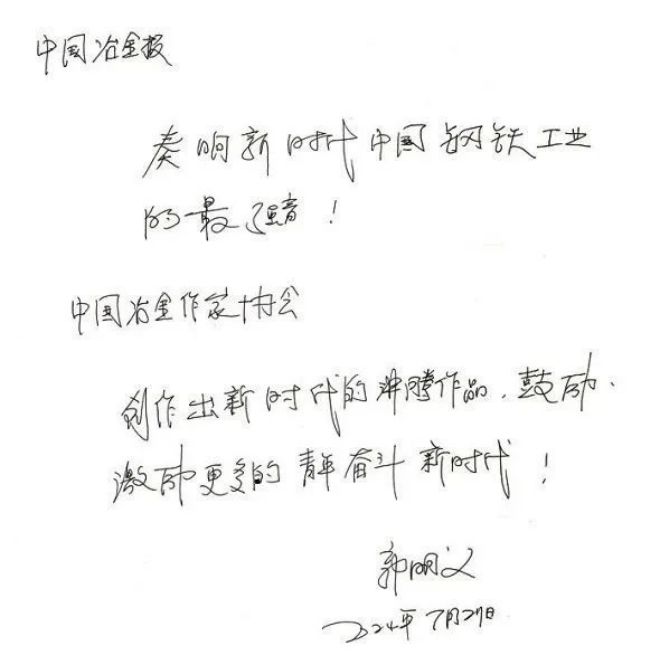 中国冶金报
奏响新时代中国钢铁工业
的最强音！
中国冶金作家协会
创作出新时代的沸腾作品、鼓励、
激励更多的青年奋斗新时代！
郭明义
2024年7月27日